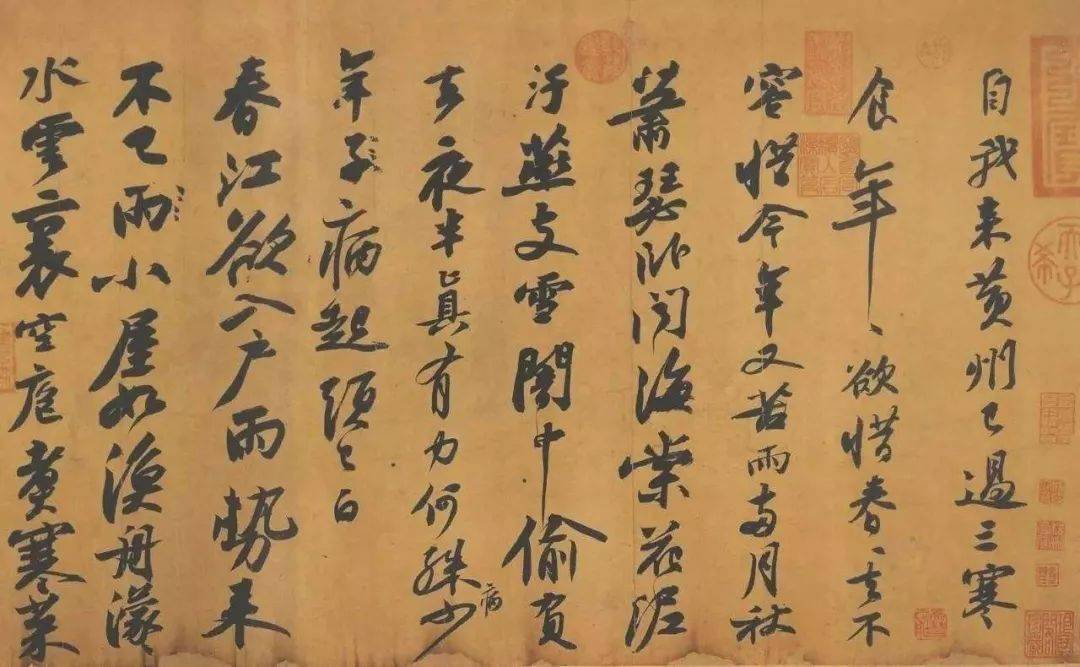 自我来黄州已過三寒
食年、欲惜春、去不
容惜今年又苦雨兩月秋
蕭瑟卧聞海棠花泥
汙燕支雪闇中偷負
去夜半真有力何殊病少
年子病起頭已白
春江欲入户雨勢来
不已雨小屋如漁舟濛、
水雲裏空庖煑寒菜